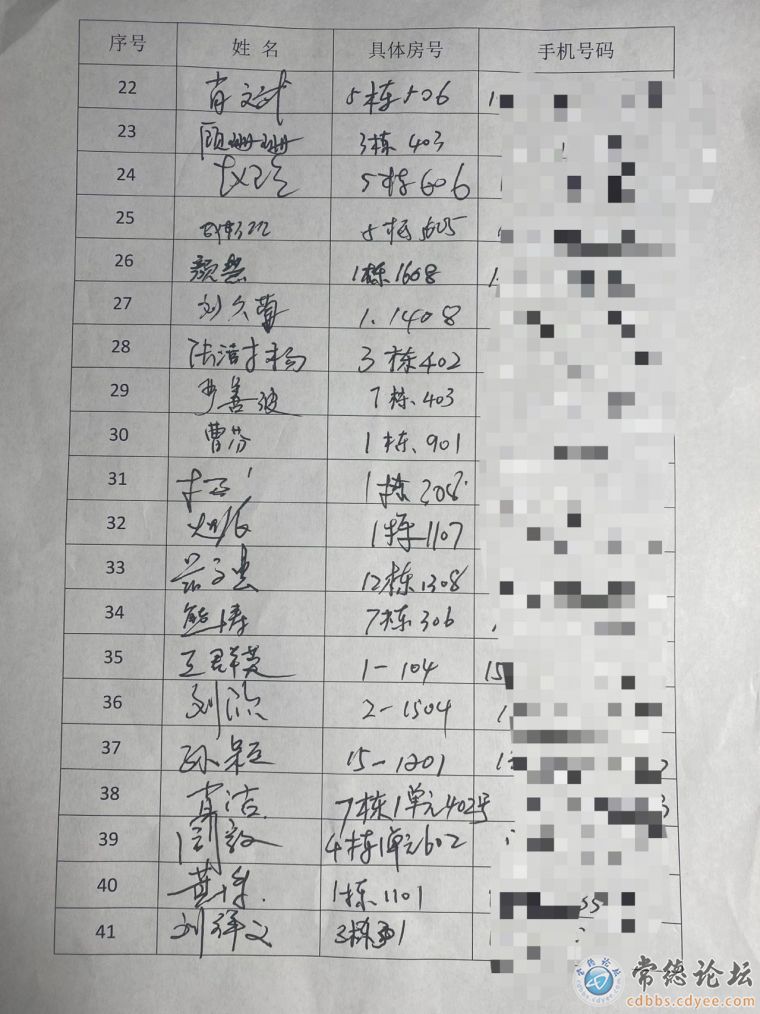 序号 姓名 具体房号 手机号码
22 肖文斌 5栋506 1
23 顾姗姗 3栋403
24 5栋606
25 5栋605
26 颜慧 1栋1608
27 刘久菊 1.1408
28 3栋402
29 罗善波 7栋.403
30 曹芬 1栋.901
31 1栋208
32 1栋1107
33 12栋1308
34 熊涛 7栋306
35 王群英 1-104 15
36 刘欣 2-1504
37 孙颖 15-1201
38 肖洁 7栋1单元402号
39 周毅 4栋1单元602
40 黄 1栋.1101
41 刘泽文 3栋
常德论坛
cdbbs.cdyee.com